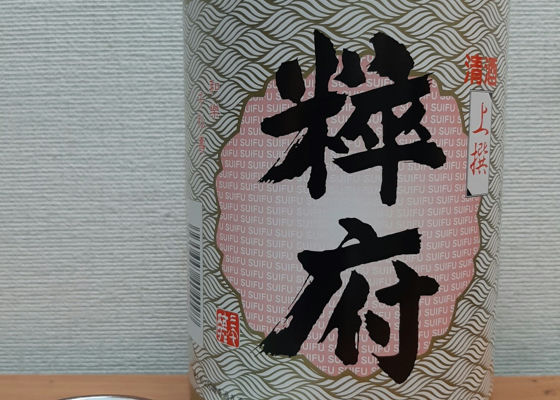 清酒
上撰
粹府
SUIFU SUIFU SUIFU SUIFU SUIFU